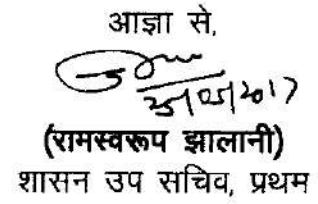 आज्ञा से,
25/05/2017
(रामस्वरूप झालानी)
शासन उप सचिव, प्रथम